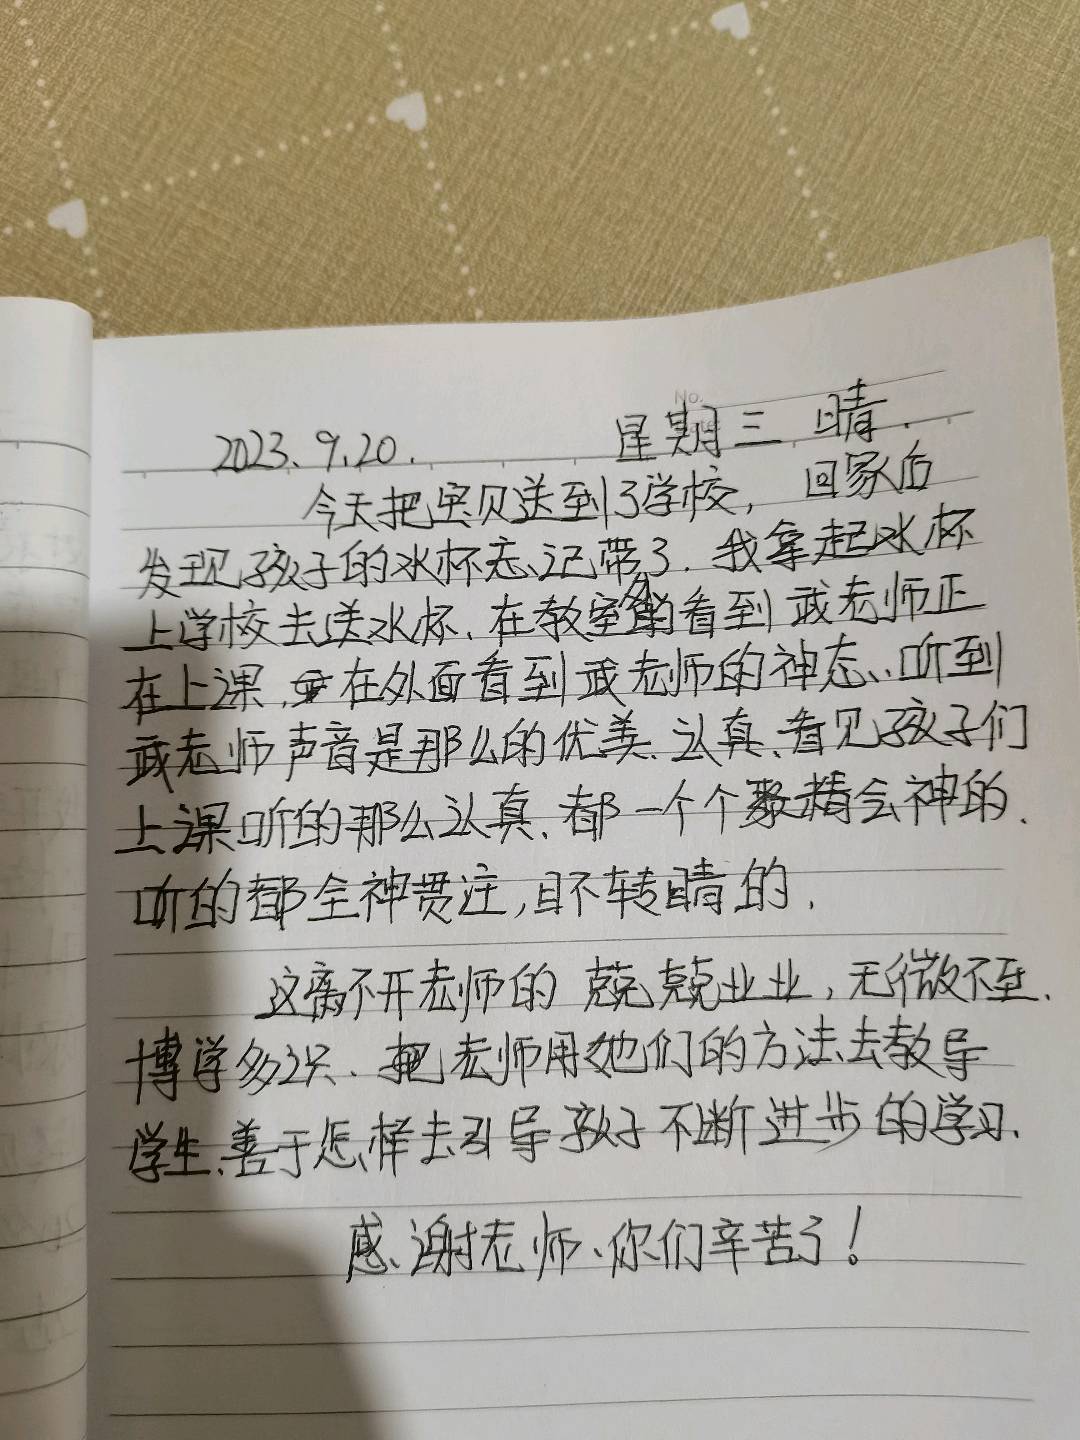 No.
2023.9.20. 星期三 晴.
今天把宝贝送到了学校, 回家后
发现孩子的水杯忘记带了. 我拿起水杯
上学校去送水杯. 在教室外看到武老师正
在上课. 在外面看到武老师的神态、听到
武老师声音是那么的优美、认真、看见孩子们
上课听的那么认真、都一个个聚精会神的.
听的都全神贯注, 目不转睛的.
这离不开老师的兢兢业业, 无微不至.
博学多识. 老师用她们的方法去教导
学生、善于怎样去引导孩子不断进步的学习.
感谢老师、你们辛苦了!